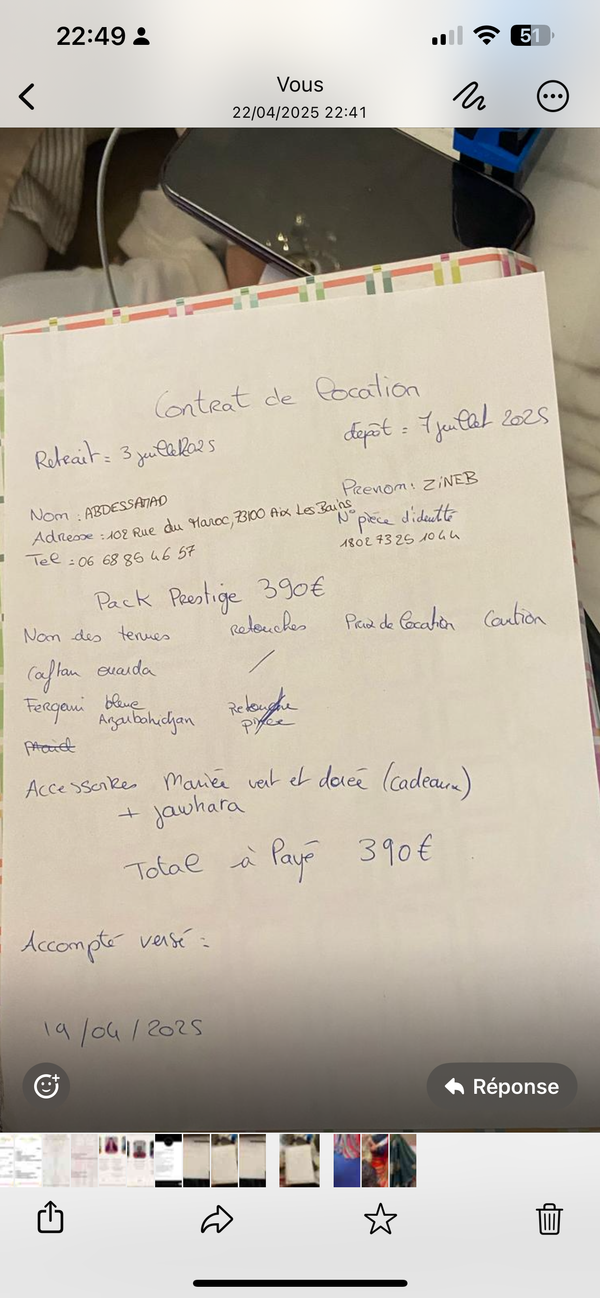 22:49
51
Vous
22/04/2025 22:41
Contrat de location
Retrait : 3 juillet 2025
depôt = 7 juillet 2025
Nom : ABDESSAMAD
Prenom : ZiNEB
Adresse : 102 Rue du Maroc, 73100 Aix Les Bains
N° pièce d'identité
Tel : 06 68 85 46 57
1802 7325 1044
Pack Prestige 390€
Nom des tenues Retouches Prix de location Caution
Caftan ouarda /
Fergani bleue Retouche
Arzarbahidjan
Accessoires Mariée vert et dorée (cadeaux)
+ jawhara
Total à Payé 390€
Accompté versé :
19/04/2025
Réponse